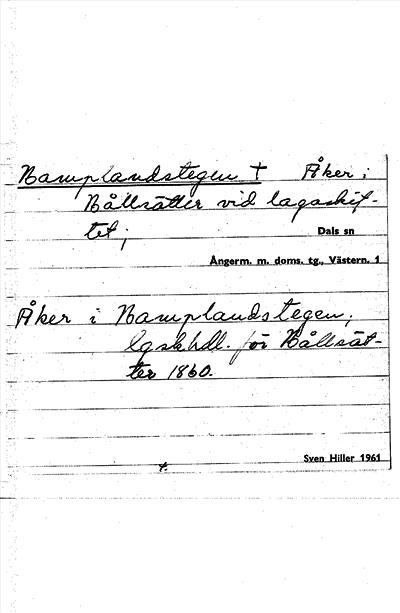 Kamplandstegen † Åker i
Bållsätter vid lagaskif-
tet;
Dals sn
Ångerm. m. doms. tg., Västern. 1
Åker i Kamplandstegen,
lgskhdl. för Bållsät-
ter 1860.
Sven Hiller 1961